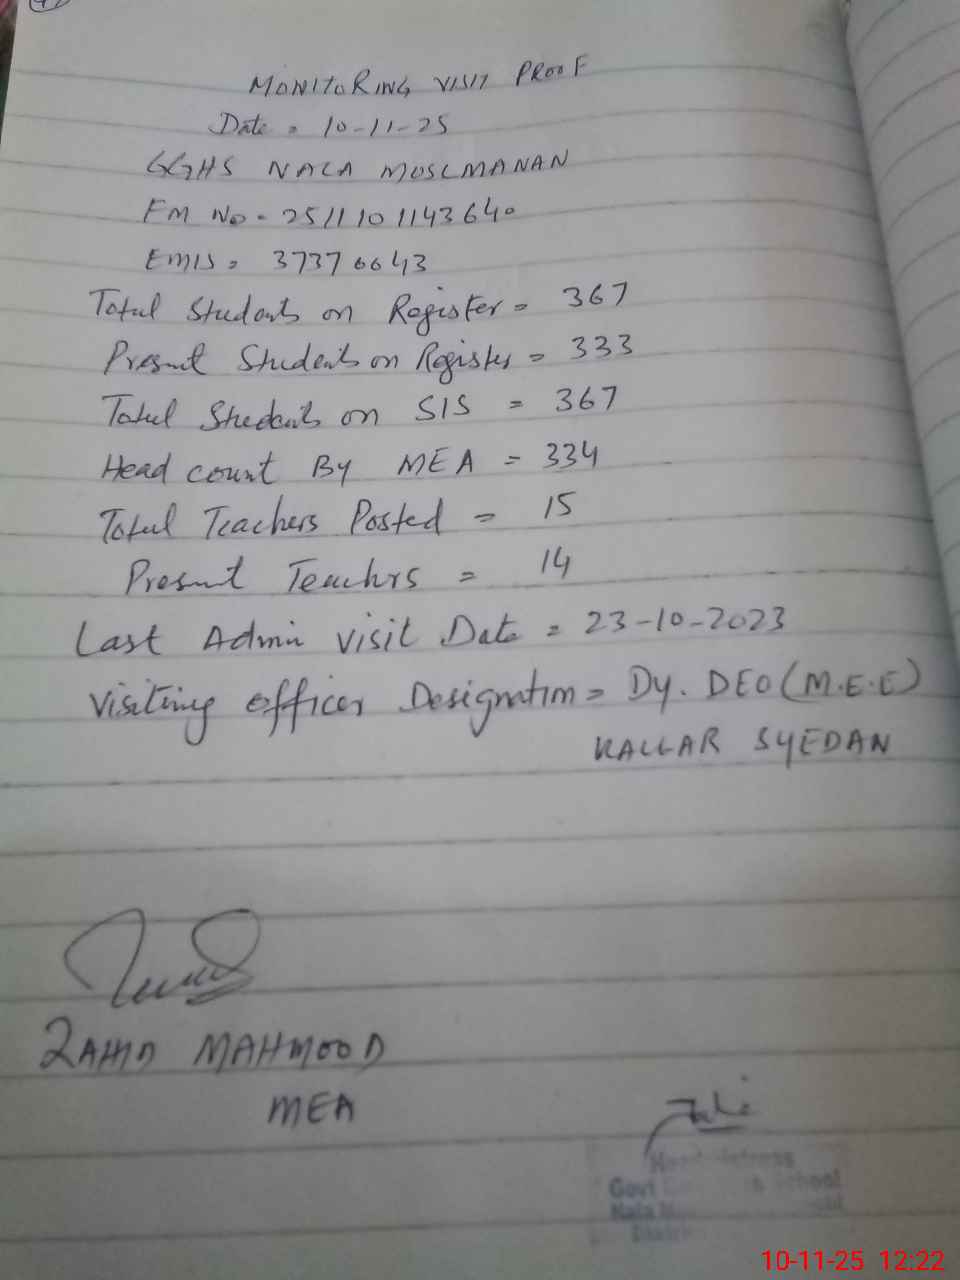 MONITORING VISIT PROOF
Date = 10-11-25
GGHS NALA MUSLMANAN
FM No = 2511101143640
EMIS = 37376643
Total Students on Register = 367
Present Students on Register = 333
Total Students on SIS = 367
Head count By MEA = 334
Total Teachers Posted = 15
Present Teachrs = 14
Last Admin visit Date = 23-10-2023
Visiting officer Designation = Dy. DEO (M.E.E)
KALLAR SYEDAN
ZAHID MAHMOOD
MEA
Govt School
Nala
10-11-25 12:22